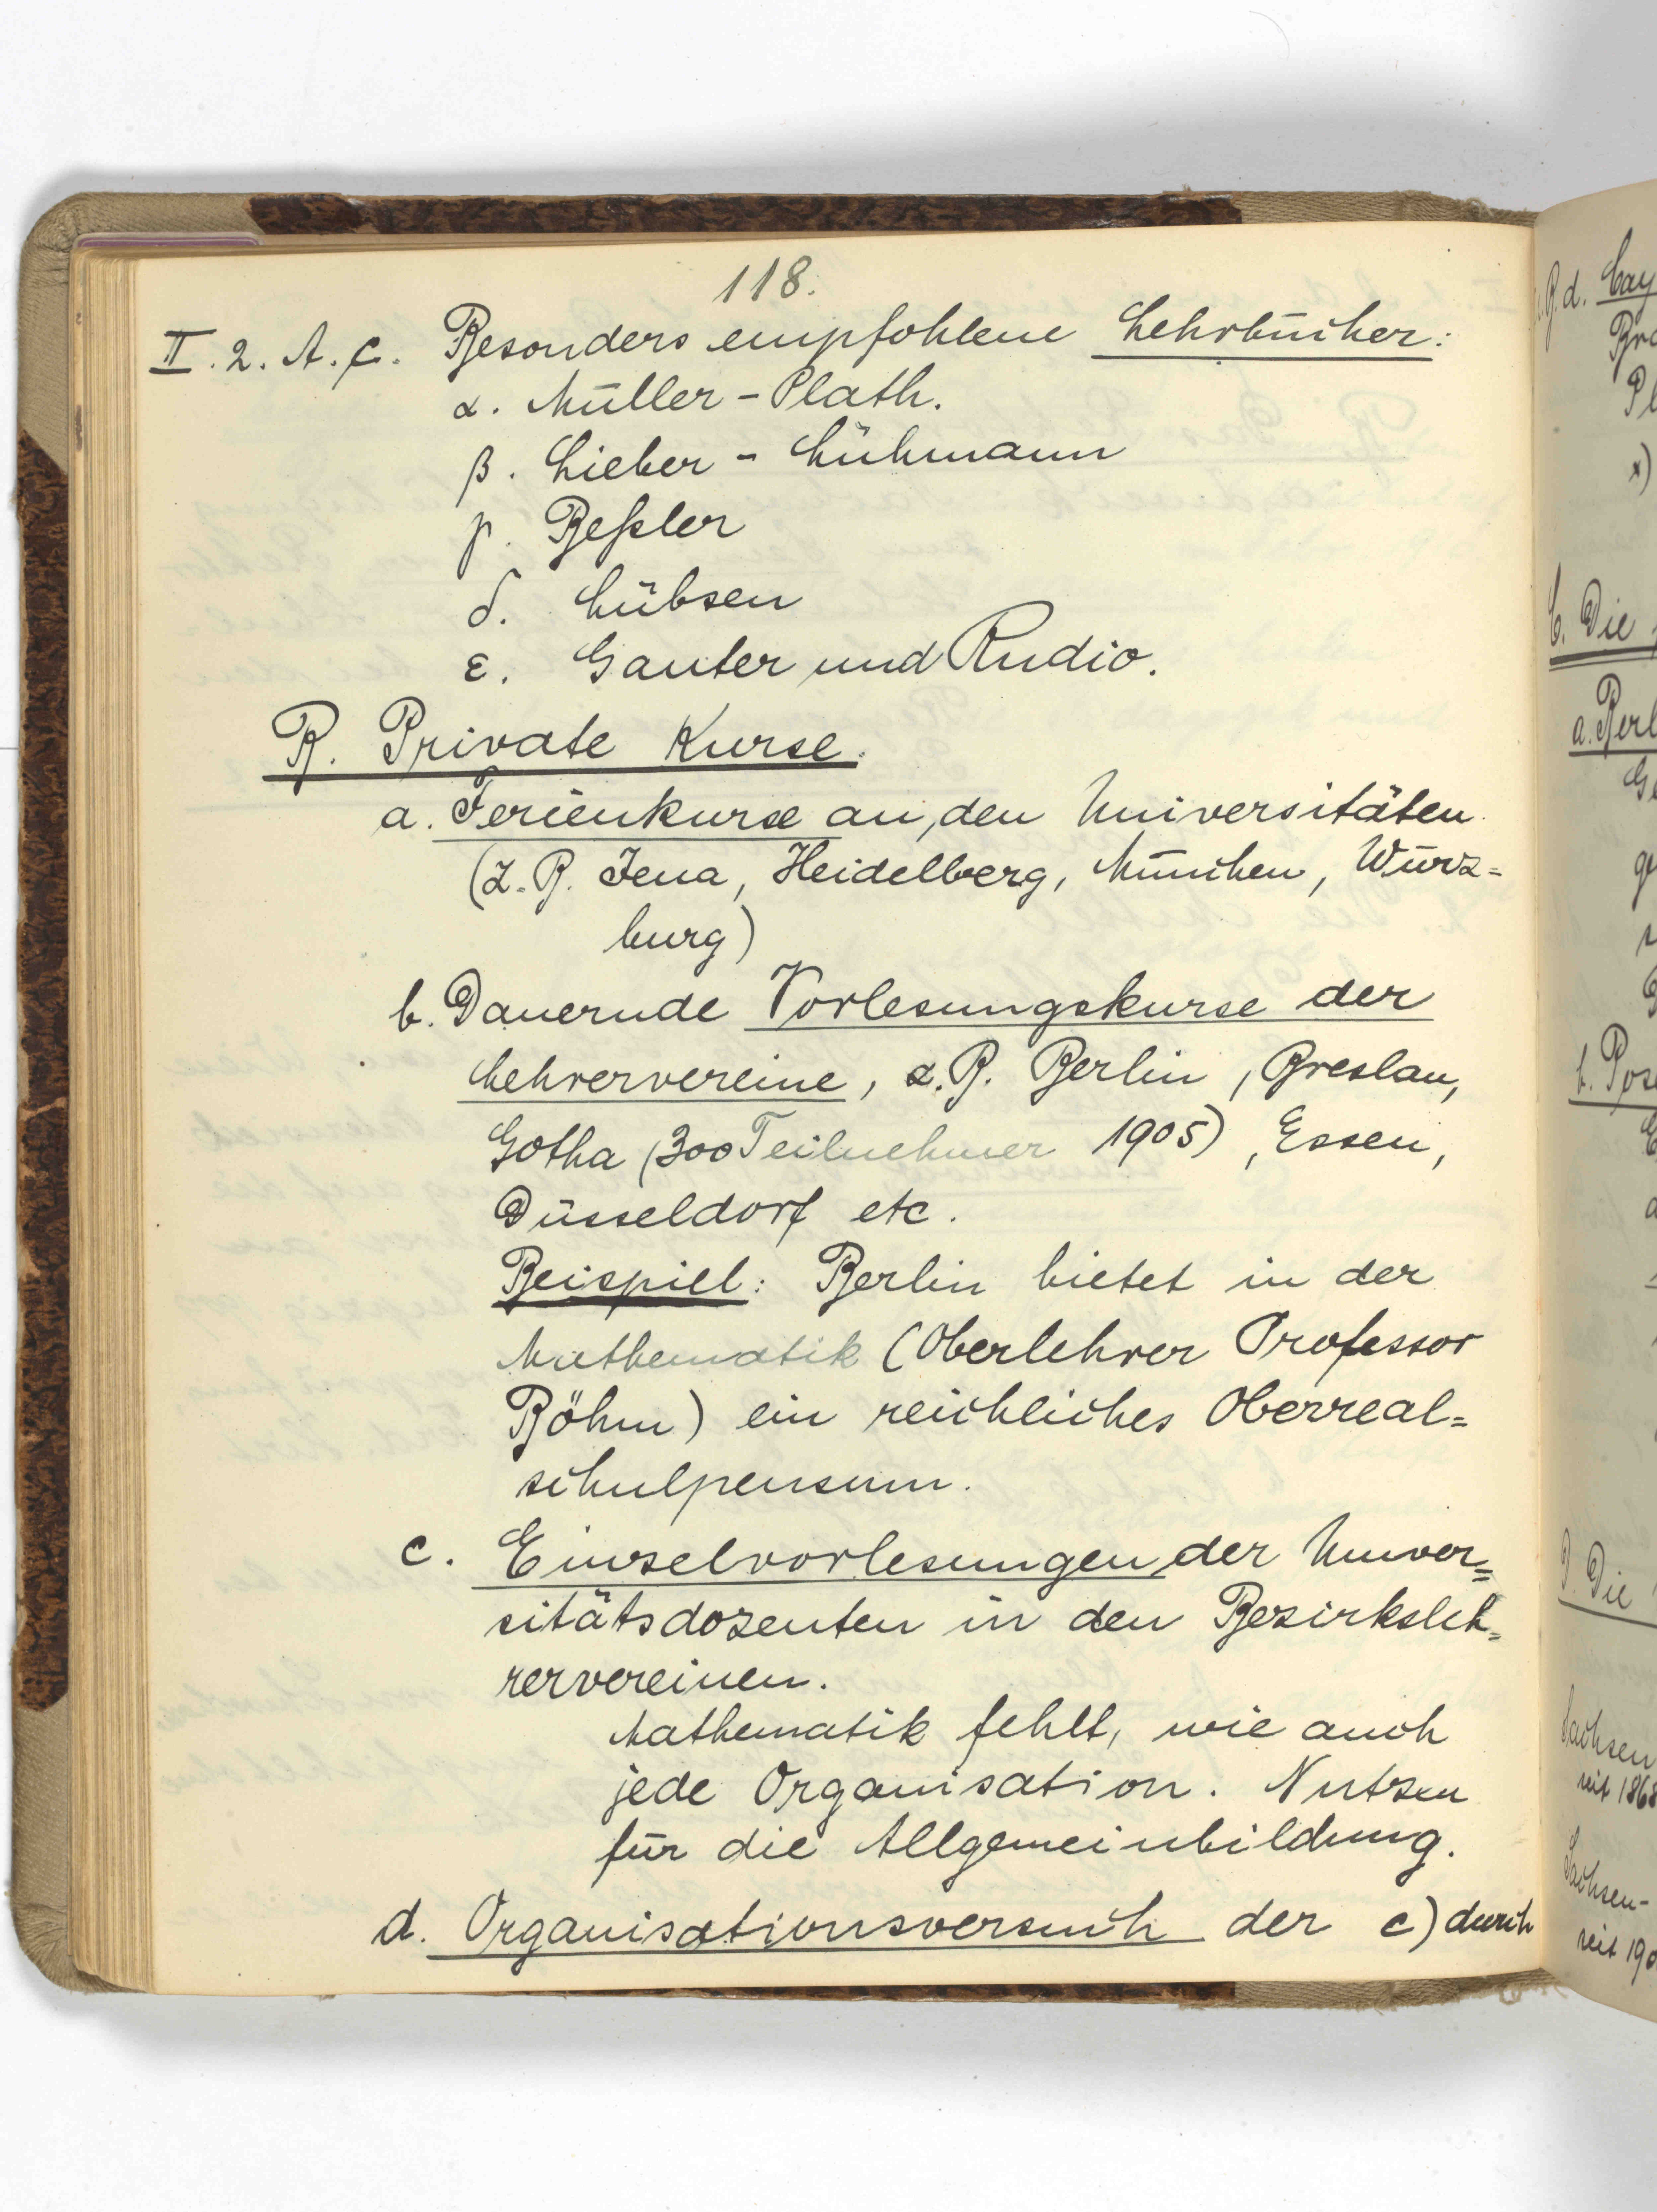 118.
II. 2. A. c. Besonders empfohlene Lehrbücher:
α. Müller-Plath.
β. Lieber - Lühmann
γ. Beßler
δ. Lübsen
ε. Ganter und Rudio.
B. Private Kurse.
a. Ferienkurse an den Universitäten
(z. B. Jena, Heidelberg, München, Würz=
burg)
b. Dauernde Vorlesungskurse der
Lehrervereine, z. B. Berlin, Breslau,
Gotha (300 Teilnehmer 1905), Essen,
Düsseldorf etc.
Beispiel: Berlin bietet in der
Mathematik (Oberlehrer Professor
Böhm) ein reichliches Oberreal=
schulpensum.
c. Einzelvorlesungen der Univer=
sitätsdozenten in den Bezirksleh=
rervereinen.
Mathematik fehlt, wie auch
jede Organisation. Nutzen
für die Allgemeinbildung.
d. Organisationsversuch der c) durch
d. Bay
C. Die
a. Berl
b. Pos
D. Die
Sachsen
seit 1868
Sachsen-
seit 190